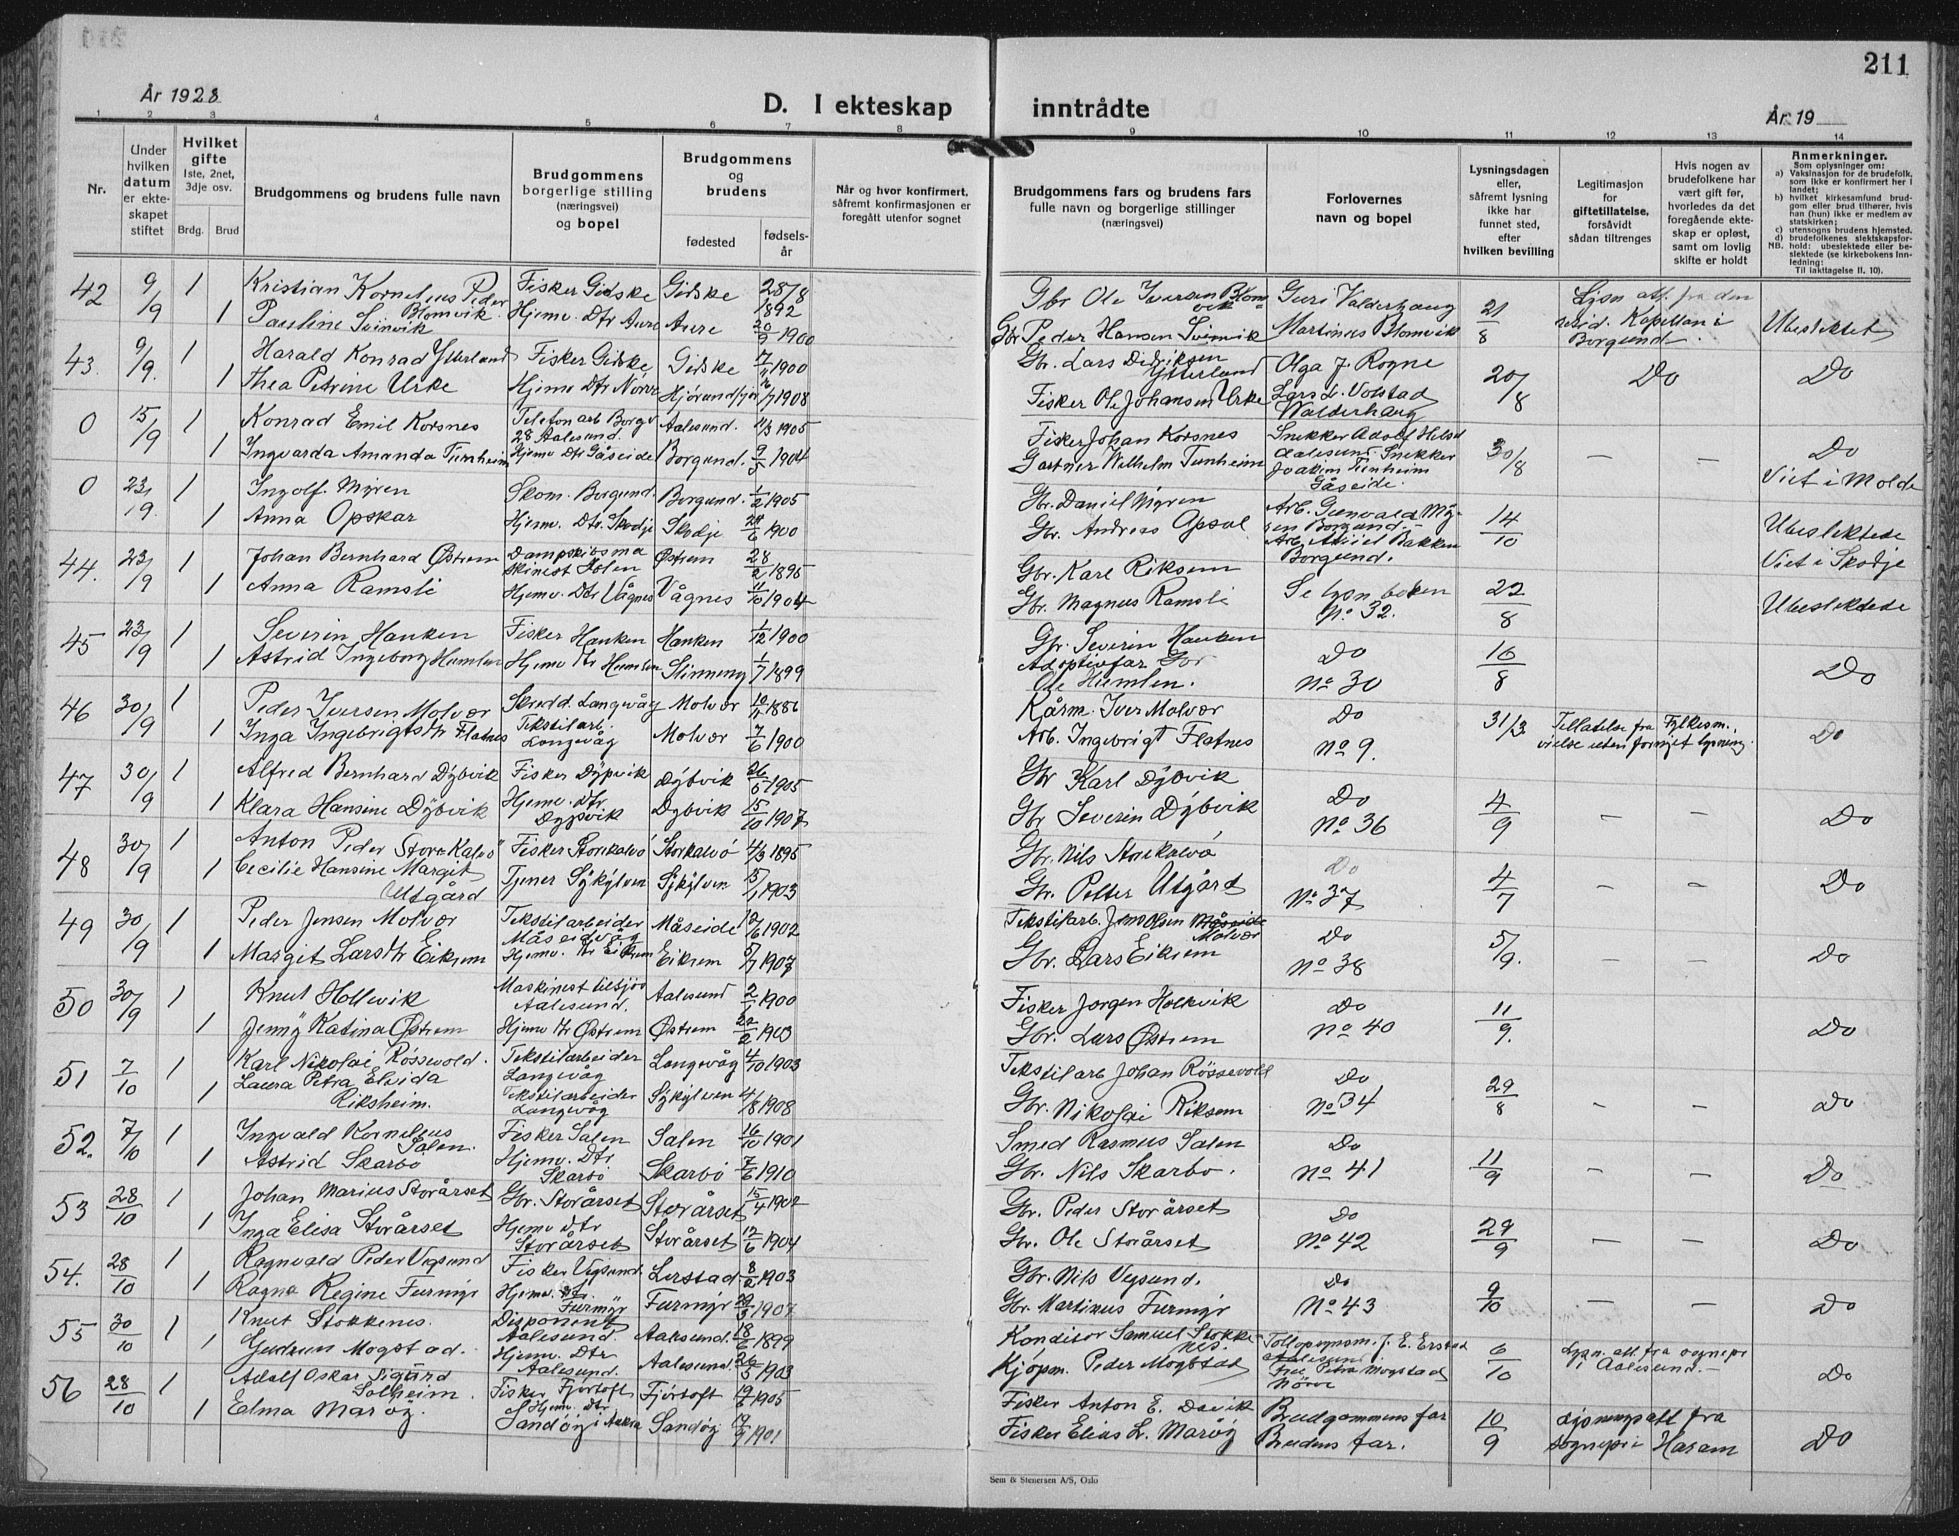 211
År 1928
D. I ekteskap inntrådte
År 19
1 2 3 4 5 6 7 8 9 10 11 12 13 14
Nr.
Under hvilken datum er ekteskapet stiftet
Hvilket gifte 1ste, 2net, 3dje osv.
Brdg. Brud
Brudgommens og brudens fulle navn
Brudgommens borgerlige stilling (næringsvei) og bopel
Brudgommens og brudens
fødested
fødselsår
Når og hvor konfirmert, såfremt konfirmasjonen er foregått utenfor sognet
Brudgommens fars og brudens fars fulle navn og borgerlige stillinger (næringsvei)
Forlovernes navn og bopel
Lysningsdagen eller, såfremt lysning ikke har funnet sted, efter hvilken bevilling
Legitimasjon for giftetillatelse, forsåvidt sådan tiltrenges
Hvis nogen av brudefolkene har vært gift før, hvorledes da det foregående ekteskap er opløst, samt om lovlig skifte er holdt
Anmerkninger.
Som oplysninger om:
a) Vaksinasjon for de brudefolk, som ikke er konfirmert her i landet;
b) hvilket kirkesamfund brudgom eller brud tilhører, hvis han (hun) ikke er medlem av statskirken;
c) utensogns brudens hjemsted.
d) brudefolkenes slektskapsforhold: ubeslektede eller beslektede (se kirkebokens Innledning:
NB.
Til iakttagelse II. 10).
42 9/9 1 Kristian Kornelius Peder Blomvik Fisker Gidske Gidske 28/8 1892 Gbr Ole Iversen Blomvik Guri Valderhaug 21/8 Lysn att. fra den resid. Kapellan i Borgund
1 Pauline Svinvik Hjemv. Dtr Aure Aure 20/3 1900 Gbr Peder Hansen Svinvik Martinus Blomvik Ubeslektet
43. 9/9. 1 Harald Konrad Ytterland Fisker Gidske Gidske 1900 Gbr. Lars Didriksen Ytterland Olga J. Rogne 20/8 Do Do
1 Thea Petrine Urke Hjemv Dtr Nörve Hjörundfjor 1908 Fisker Ole Johansen Urke Lars L. Volstad Valderhaug
0 15/9 1 Konrad Emil Korsnes Telefon arb Borgv 28 Aalesund. Aalesund. 1905 Fisker Johan Korsnes Snekker Adolf 30/8 – – Do
1 Ingvarda Amanda Tunheim Hjemv Dtr Gåseide Borgund. 9/5 1904 Gartner Vilhelm Tunheim Aalesund Snekker Joakim Tunheim Gåseide. Viet i Molde
0 23/9. 1 Ingolf Myren Skom. Borgund. Borgund. 1/2 1905 Gbr. Daniel Myren Arb. Myren Borgund. 14/10 Ubeslektede
1 Anna Opskar Hjemv. Dtr. Skodje Skodje 1900 Gbr. Andreas Arb. Bakken Borgund. Viet i Skodje
44. 23/9 1 Johan Bernhard Östrem Dampskibsmaskinest Östrem 28/2 1895 Gbr. Karl Riksem Se lysn boken No. 32. 22/8 Ubeslektede
1 Anna Ramsli Hjemv. Dtr Vågnes Vågnes 11/10 1904 Gbr. Magnus Ramsli
45 23/9 1 Severin Hanken Fisker Hanken Hanken 1/12 1900 Gbr. Severin Hanken Do No 30 16/8 Do
1 Astrid Ingeborg Humlen Hjemv Dtr Humlen Slinning 1/7 1899 Adoptivfar Gbr Ole Humlen.
46 30/9 1 Peder Iversen Molvær Skredd. Langevåg Molvær 1886 Kårm. Iver Molvær Do No 9. 31/3 Tillatelse fra Fylkesm. vielse uten fornyet lysning. Do
1 Inga Ingebrigtsdtr Flatnes Tekstilarb. Langevåg Molvær 7/6 1900 Arb. Ingebrigt Flatnes
47 30/9 1 Alfred Bernhard Dybvik Fisker Dypvik Dybvik 1905 Gbr Karl Dybvik Do No 36 4/9 – – Do
1 Klara Hansine Dybvik Hjemv. Dtr Dypvik Dybvik 15/10 1907 Gbr Severin Dybvik
48 30/9 1 Anton Peder Store Kalvö Fisker Storekalvö Storkalvö 4/3 1895 Gbr. Nils Storekalvö Do No 37 4/7 – – Do
1 Cecilie Hansine Margit Utgård Tjener Sykylven Sykylven 5/1 1903 Gbr. Petter Utgård
49 30/9 1 Peder Jensen Molvær Tekstilarbeider Måseidevåg Måseide 1902 Tekstilarb. Jens Olsen Måseide Molvær Do No 38 5/9. – – Do
1 Margit Larsdtr Eikrem Hjemv. Dtr Eikrem Eikrem 5/7 1907 Gbr. Lars Eikrem
50 30/9 1 Knut Holkvik Maskinest tilsjös Aalesund. Aalesund 1900 Fisker Jörgen Holkvik Do No 40 11/9. Do
1 Jenny Katina Östrem Hjemv Dtr Östrem Östrem 22/2 1903 Gbr. Lars Östrem
51 7/10 1 Karl Nikolai Rössevold. Tekstilarbeider Langevåg Langevåg 4/10 1903 Tekstilarb Johan Rössevold Do No 34 29/8 – – Do
1 Laura Petra Elvida Riksheim. Tekstilarbeider Langevåg Sykylven 4/8 1908 Gbr. Nikolai Riksem
52. 7/10 1 Ingvald Kornelius Salen. Fisker Salen Salen 16/10 1901 Smed Rasmus Salen Do No 41 11/9 – – Do
1 Astrid Skarbö Hjemv. Dtr Skarbö Skarbö 7/6 1910 Gbr. Nils Skarbö.
53 28/10 1 Johan Marius Storårset Gbr. Storårset Storårset 15/4 1902 Gbr. Peder Storårset Do No 42 29/9 – – Do
1 Inga Elisa Storårset Hjemv dtr Storårset Storårset 12/6 1904 Gbr. Ole Storårset
54. 28/10 1 Ragnvald Peder Vegsund Fisker Vegsund. Lerstad 8/2 1903 Gbr. Nils Vegsund. Do No 43 9/10 – – Do
1 Ragna Regine Furmyr Hjemv. dtr. Furmyr Furmyr 29/3 1907 Gbr. Martinus Furmyr
55 30/10 1 Knut Stokkenes. Disponent Aalesund. Aalesund. 18/6 1899 Konditor Samuel Stokkenes. Tollopsynsm. J. E. Erstad Aalesund 6/10 Lysn. att. fra sognepr i Aalesund. Do
1 Gudrun Mogstad. Hjemv. Dtr Aalesund. Aalesund. 26/3 1903 Kjöpm. Peder Mogstad Petra Mogstad Nörve
56 28/10 1 Adolf Oskar Sigurd Solheim. Fisker Fjörtoft Fjörtoft 1905 Fisker Anton E. Davik Brudgommens far 10/9 Lysningsatt fra sognepr i Haram Do
1 Elma Maröy. Hjemv. dtr Sandöy i Aukra Sandöy 1901 Fisker Elias L. Maröy Brudens far.
Sem & Stenersen A/S, Oslo